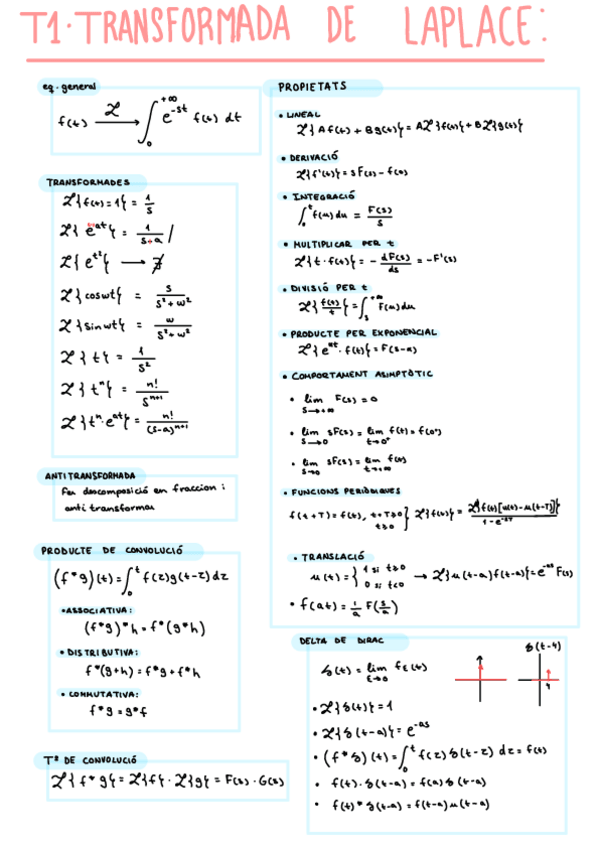 T1·TRANSFORMADA DE LAPLACE:
eq. general
f(t) ℒ→ ∫₀^+∞ e^-st f(t) dt
TRANSFORMADES
ℒ{f(t)=1} = 1/s
ℒ{e^at} = 1/(s-a) /
ℒ{e^t²} → ∄
ℒ{coswt} = s/(s²+w²)
ℒ{sinwt} = w/(s²+w²)
ℒ{t} = 1/s²
ℒ{t^n} = n!/s^n+1
ℒ{t^n·e^at} = n!/(s-a)^n+1
ANTITRANSFORMADA
Fer descomposició en fraccion i
anti transformar
PRODUCTE DE CONVOLUCIÓ
(f*g)(t) = ∫₀^t f(z)g(t-z)dz
•ASSOCIATIVA:
(f*g)*h = f*(g*h)
• DISTRIBUTIVA:
f*(g+h) = f*g + f*h
• COMMUTATIVA:
f*g = g*f
Tª DE CONVOLUCIÓ
ℒ{f*g} = ℒ{f}·ℒ{g} = F(s)·G(s)
PROPIETATS
• LINEAL
ℒ{Af(t)+Bg(t)} = Aℒ{f(t)}+Bℒ{g(t)}
• DERIVACIÓ
ℒ{f'(t)} = sF(s)-f(0)
• INTEGRACIÓ
∫₀^t f(u)du = F(s)/s
• MULTIPLICAR PER t
ℒ{t·f(t)} = - dF(s)/ds = -F'(s)
• DIVISIÓ PER t
ℒ{f(t)/t} = ∫_s^+∞ F(u)du
• PRODUCTE PER EXPONENCIAL
ℒ{e^at·f(t)} = F(s-a)
• COMPORTAMENT ASIMPTÒTIC
• lim s→+∞ F(s)=0
• lim s→0 sF(s) = lim t→0⁺ f(t) = f(0⁺)
• lim s→0 sF(s) = lim t→+∞ f(t)
• FUNCIONS PERIÒDIQUES
f(t+T)=f(t), t=T>0 t≥0 } ℒ{f(t)} = ℒ{f(t)[u(t)-u(t-T)]}/(1-e^-sT)
• TRANSLACIÓ
u(t) = { 1 si t≥0
0 si t<0 → ℒ{u(t-a)f(t-a)} = e^-as F(s)
• f(at) = 1/a F(s/a)
DELTA DE DIRAC
δ(t) = lim ε→0 fε(t)
δ(t-4)
4
• ℒ{δ(t)} = 1
• ℒ{δ(t-a)} = e^-as
• (f*δ)(t) = ∫₀^t f(z)δ(t-z) dz = f(t)
• f(t)·δ(t-a) = f(a)δ(t-a)
• f(t)*δ(t-a) = f(t-a)u(t-a)